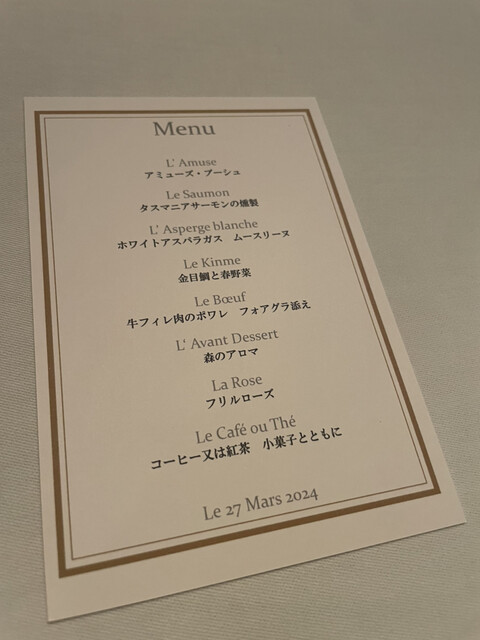 Menu
L' Amuse
アミューズ・ブーシュ
Le Saumon
タスマニアサーモンの燻製
L' Asperge blanche
ホワイトアスパラガス　ムースリーヌ
Le Kinme
金目鯛と春野菜
Le Bœuf
牛フィレ肉のポワレ　フォアグラ添え
L' Avant Dessert
森のアロマ
La Rose
フリルローズ
Le Café ou Thé
コーヒー又は紅茶　小菓子とともに
Le 27 Mars 2024